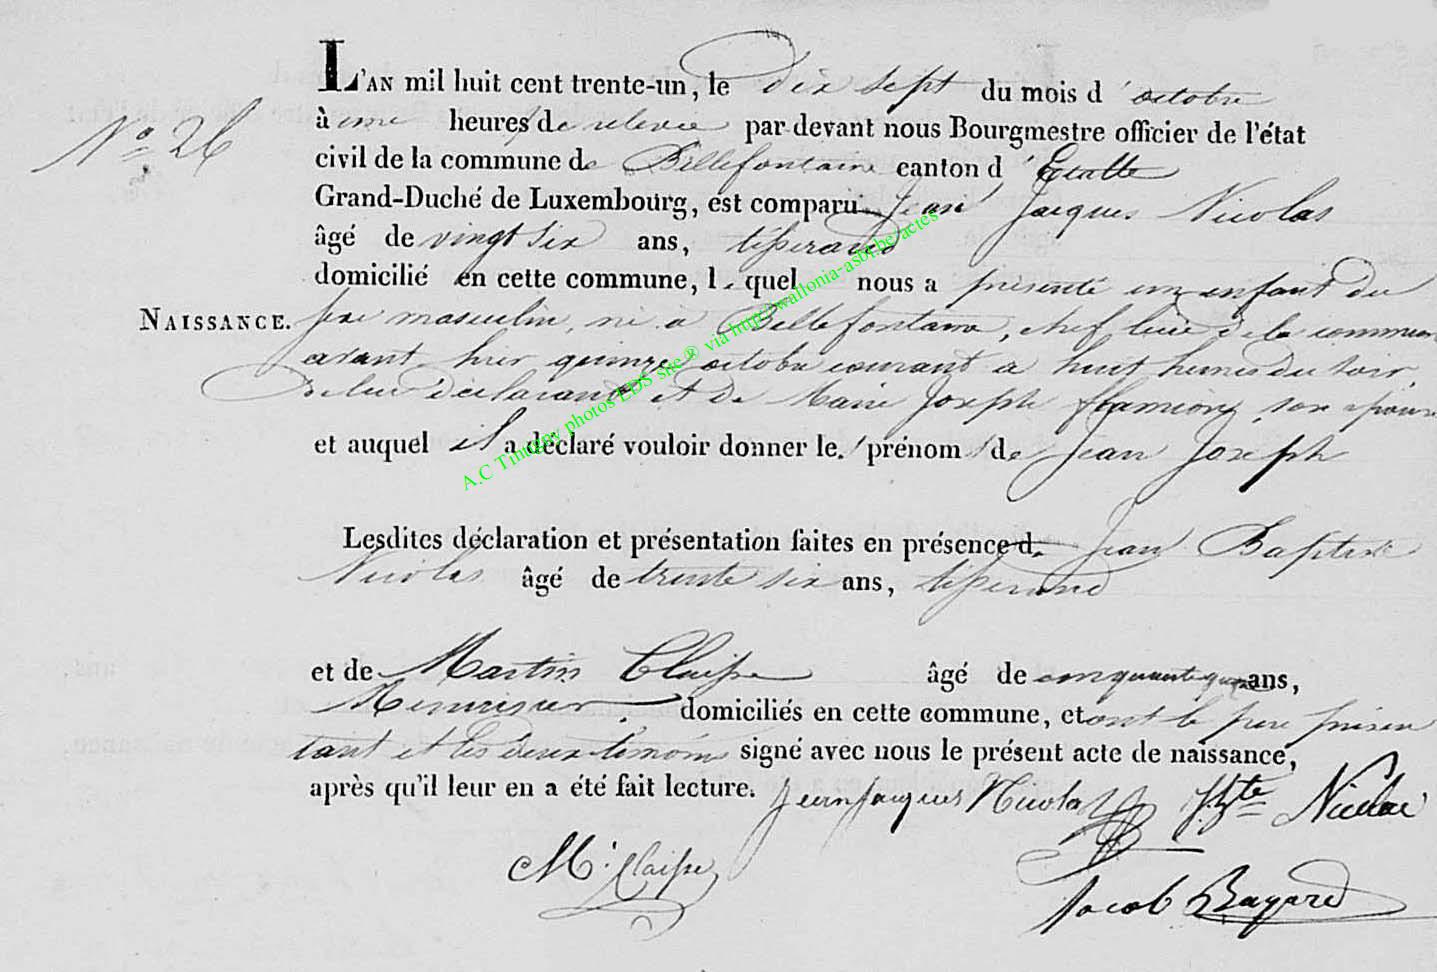 L'AN mil huit cent trente-un, le dix sept du mois d'octobre
N° 26
à une heures de relevée par devant nous Bourgmestre officier de l'état
civil de la commune de Bellefontaine canton d'Etalle
Grand-Duché de Luxembourg, est comparu Jean Jacques Nicolas
âgé de vingt six ans, tisserand
domicilié en cette commune, lequel nous a présenté un enfant du
NAISSANCE.
sexe masculin, né à Bellefontaine, chef lieu de la commune
avant hier quinze octobre courant a huit heures du soir,
De lui déclarant et de Marie Joseph flamion, son épouse
et auquel il a déclaré vouloir donner les prénoms de Jean Joseph
Lesdites déclaration et présentation faites en présence de Jean Baptiste
Nicolas âgé de trente six ans, tisserand
et de Martin Claisse âgé de cinquante ans,
Menuisier, domiciliés en cette commune, et ont le père présen
tant et les deux témoins signé avec nous le présent acte de naissance,
après qu'il leur en a été fait lecture.
Jean jacques Nicolas Nicolas
M. Claisse
Jacob Bayard
A.C Tintigny photos EDS site ® via http://wallonia-asbl.be/actes